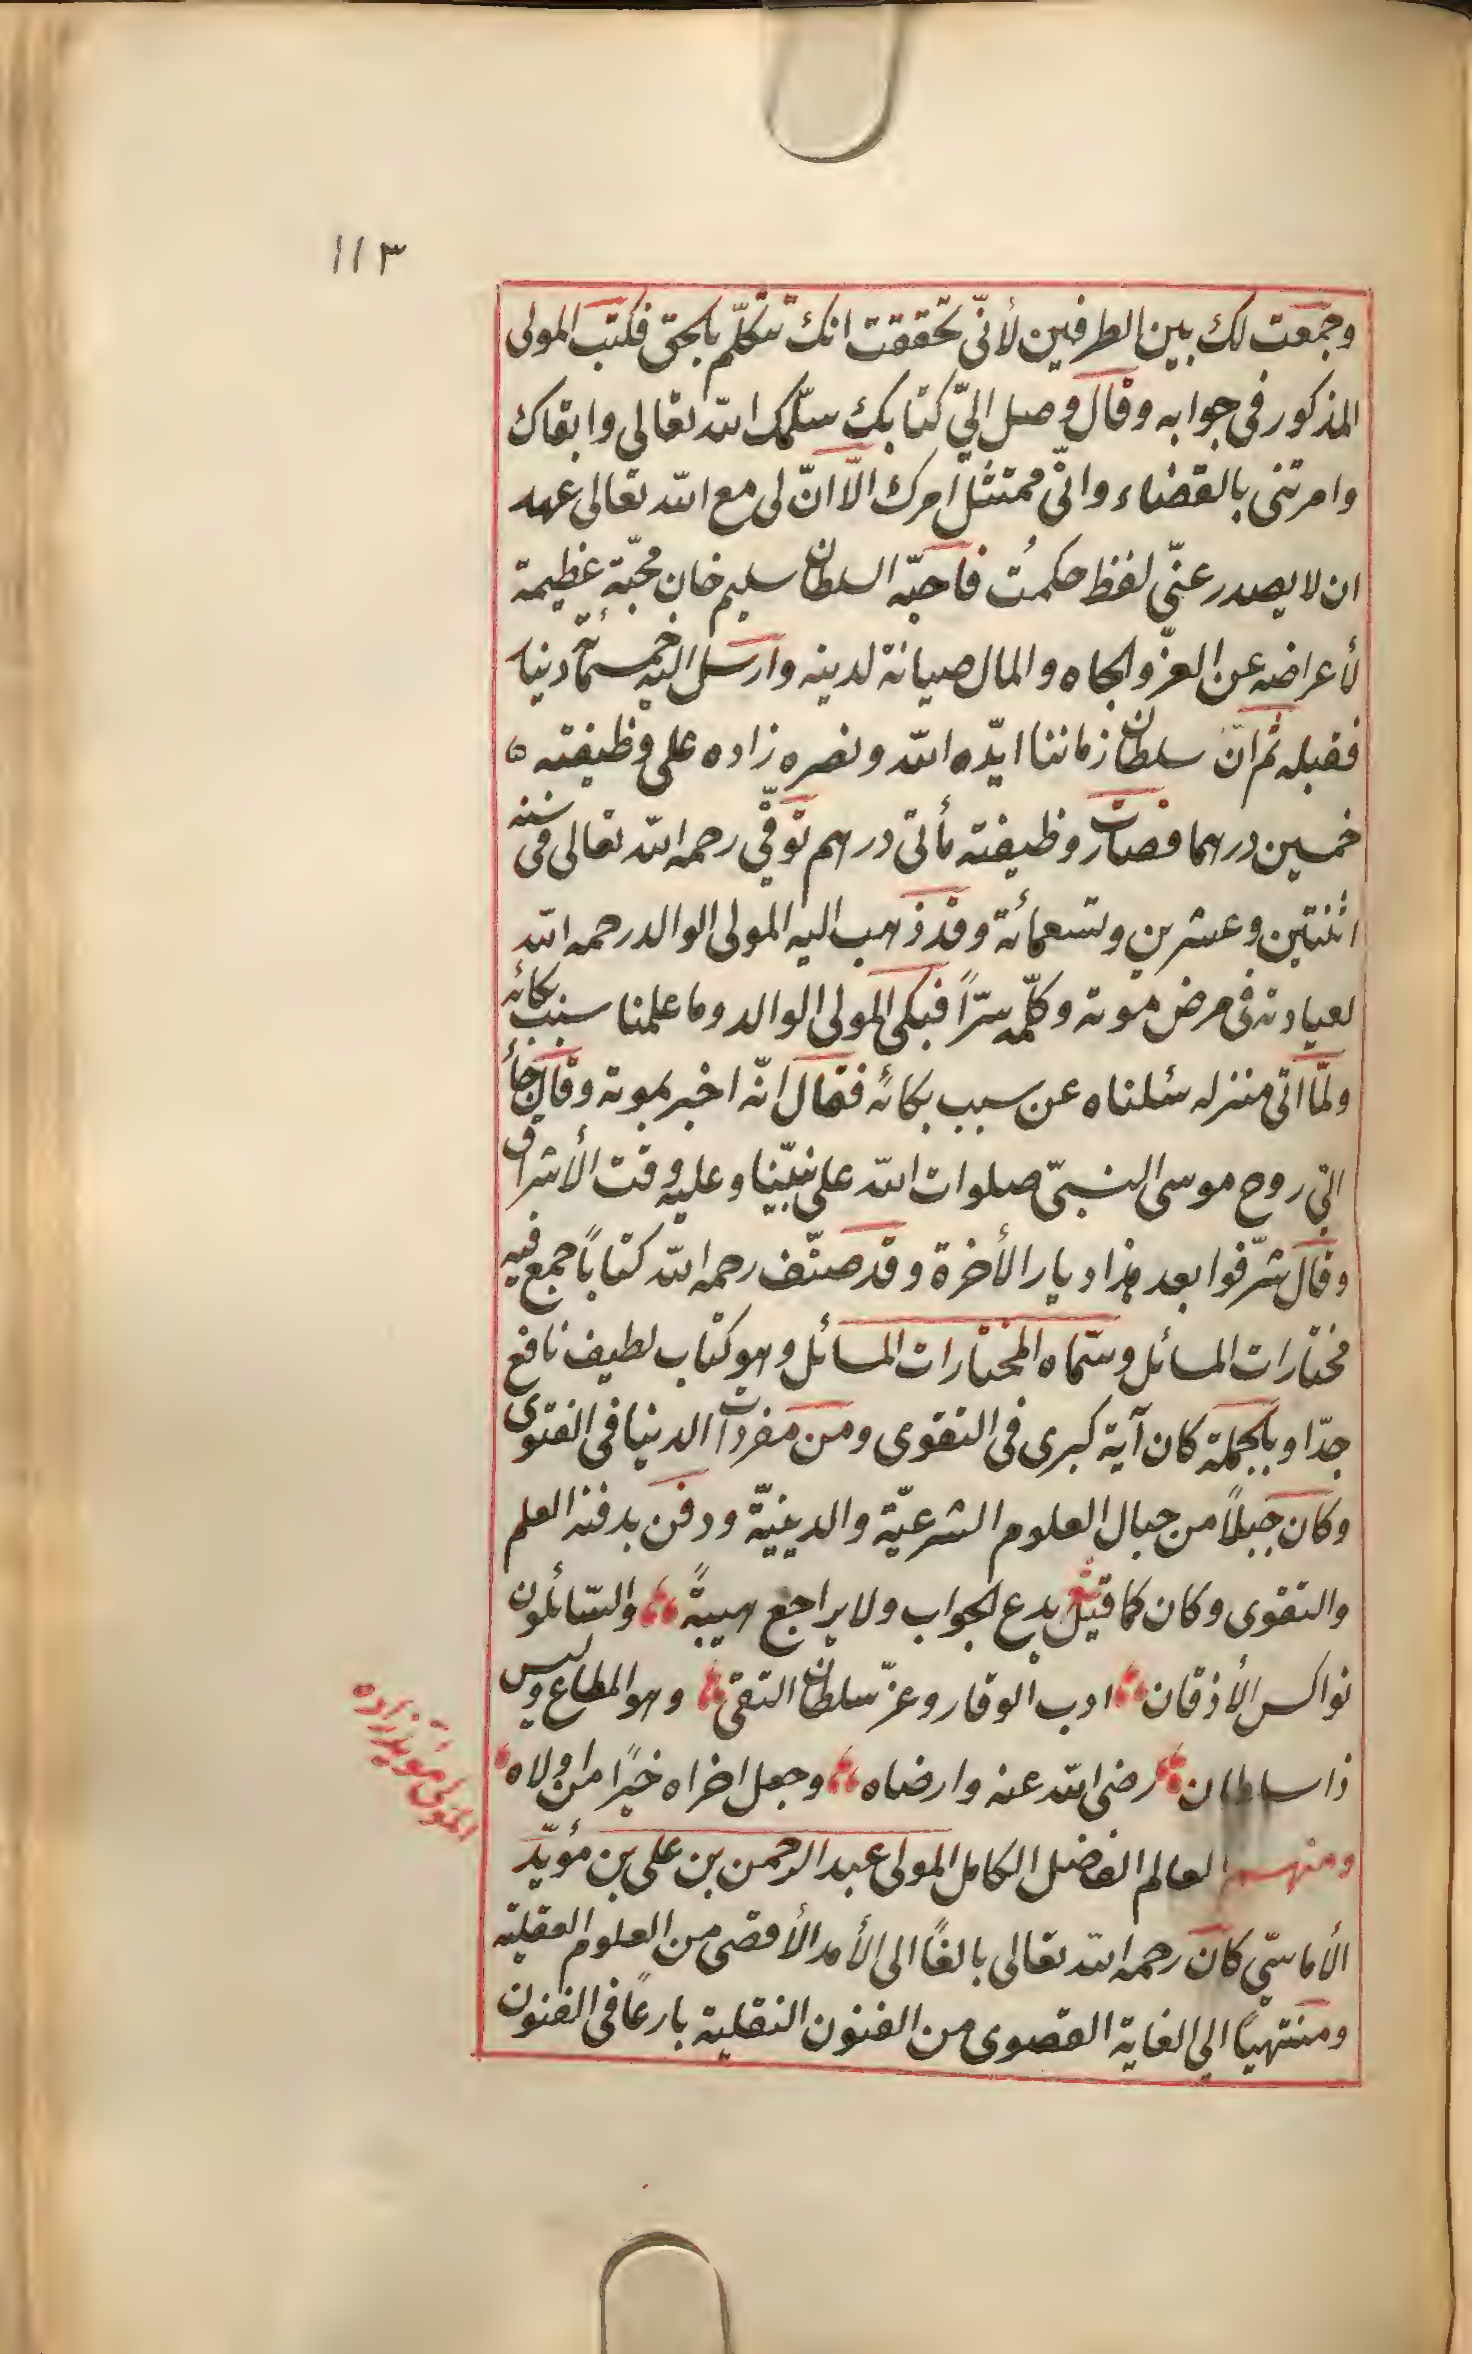 ١١٣
وجمعت لك بين الطرفين لأنّى تحققت انك تتكلّم بالحق فكتب المولى
المذكور فى جوابه وقال وصل اليّ كتابك سلّمك الله تعالى وابقاك
وامرتنى بالقضاء وانّى ممتثل امرك الّا انّ لى مع الله تعالى عهد
ان لا يصدر عنّى لفظ حكمتُ فاحبّه السلطان سليم خان محبّة عظيمة
لأعراضه عن العزّ والجاه والمال صيانة لدينه وارسل اليه خمسمأة دينار
فقبله ثم انّ سلطان زماننا ايّده الله ونصره زاده على وظيفته ٥
خمسين درهما فصارت وظيفته مأتى درهم توفّى رحمه الله تعالى فى سنه
اثنتين وعشرين وتسعمائة وقد ذهب اليه المولى الوالد رحمه الله
لعيادته فى مرض موته وكلّمه سرّاً فبكى المولى الوالد وما علمنا سبب بكائه
ولمّا اتى منزله سئلناه عن سبب بكائه فقال انّه اخبر بموته وقال جاء
الى روح موسى النبىّ صلوات الله على نبيّنا وعليه وقت الأشراق
وقال شرّفوا بعد هذا ديار الأخرة وقد صنّف رحمه الله كتاباً جمع فيه
مختارات المسائل وسمّاه المختارات المسائل وهو كتاب لطيف نافع
جدّا وبالجملة كان آية كبرى فى التقوى ومن مفردات الدنيا فى الفتوى
وكان جبلاً من جبال العلوم الشرعيّة والدينيّة ودفن بدفنه العلم
والتقوى وكان كما قيل شعر يدع الجواب ولا يراجع هيبةً والسّائلون
نواكس الأذقان ادب الوقار وعزّ سلطان التقى وهو المطاع وليس
ذا سلطان رضى الله عنه وارضاه وجعل اخراه خيرًا من اولاه
المولى مؤيد زاده
ومنهم العالم الفاضل الكامل المولى عبد الرحمن بن على بن مؤيّد
الأماسىّ كان رحمه الله تعالى بالغًا الى الأمد الأقصى من العلوم العقلية
ومنتهيًا الى الغاية القصوى من الفنون النقلية بارعًا فى الفنون